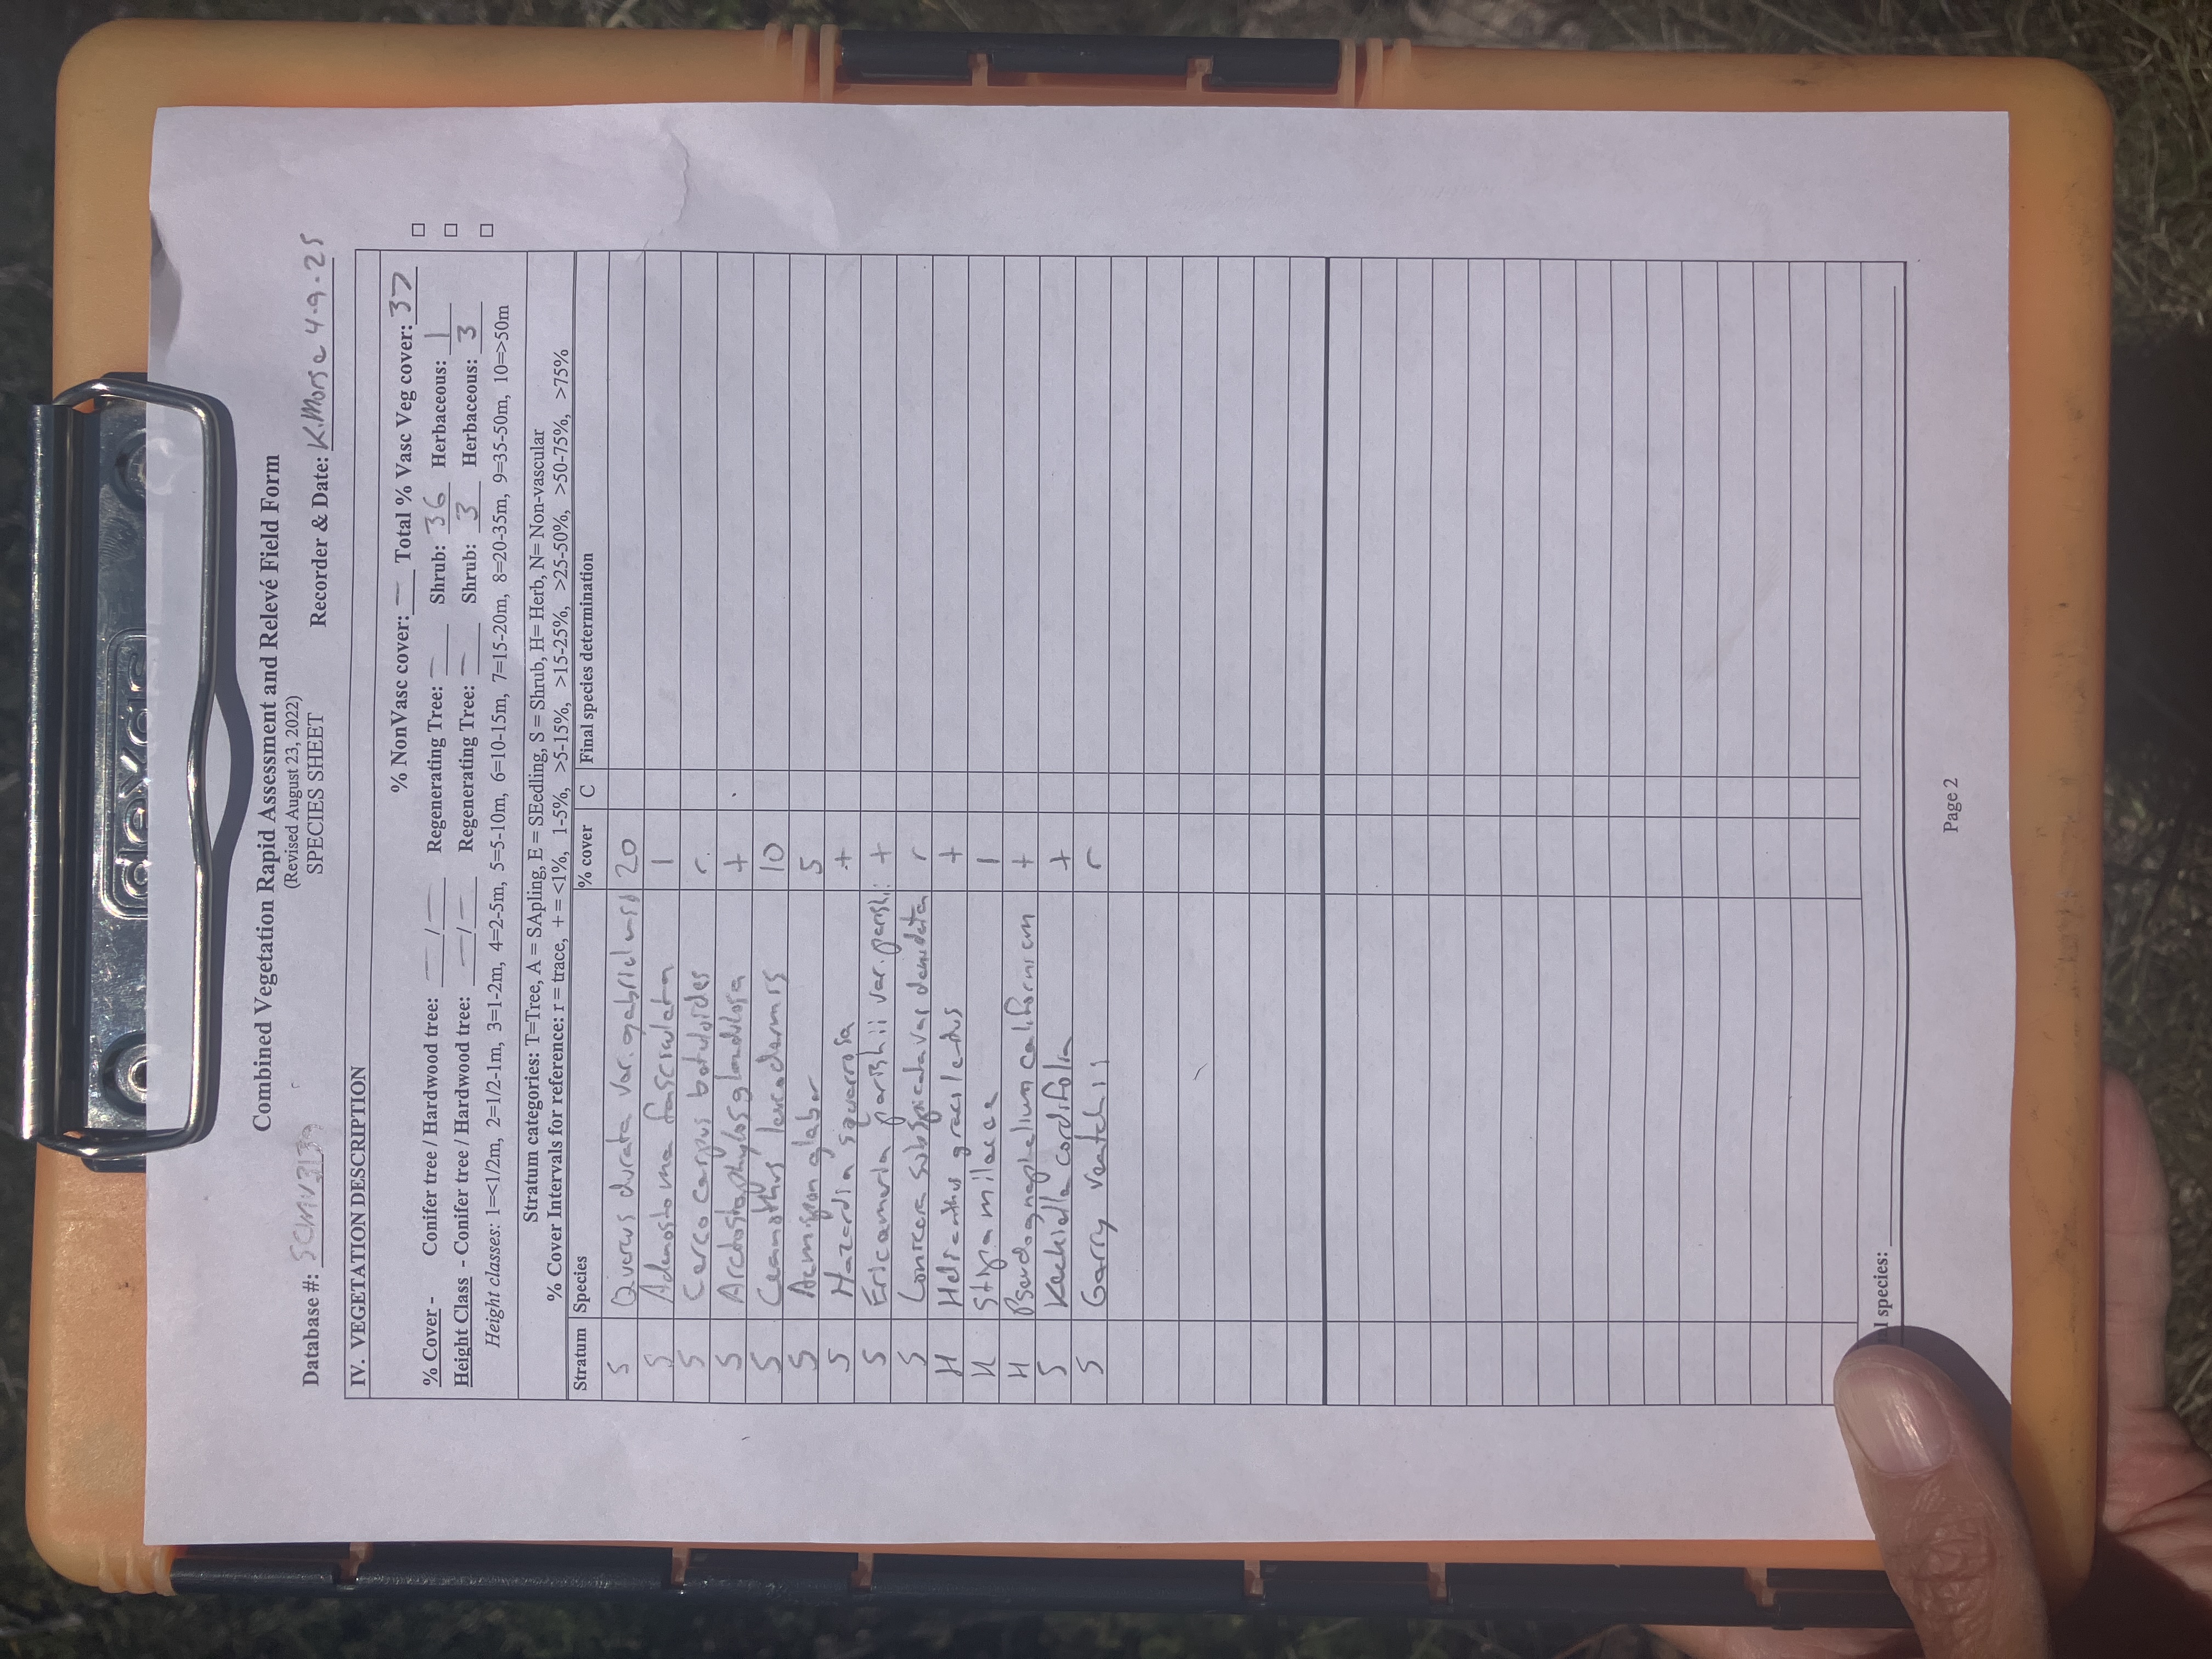 dexas
Combined Vegetation Rapid Assessment and Relevé Field Form
(Revised August 23, 2022)
SPECIES SHEET
Database #: Recorder & Date: K.Morse 4-9-25
IV. VEGETATION DESCRIPTION
% NonVasc cover: — Total % Vasc Veg cover: 37
% Cover - Conifer tree / Hardwood tree: — / — Regenerating Tree: — Shrub: 36 Herbaceous: 1
Height Class - Conifer tree / Hardwood tree: — / — Regenerating Tree: — Shrub: 3 Herbaceous: 3
Height classes: 1=<1/2m, 2=1/2-1m, 3=1-2m, 4=2-5m, 5=5-10m, 6=10-15m, 7=15-20m, 8=20-35m, 9=35-50m, 10=>50m
Stratum categories: T=Tree, A = SApling, E = SEedling, S = Shrub, H= Herb, N= Non-vascular
% Cover Intervals for reference: r = trace, + = <1%, 1-5%, >5-15%, >15-25%, >25-50%, >50-75%, >75%
Stratum Species % cover C Final species determination
S Quercus durata var. 20
S Adenostoma fasciculatum 1
S Cercocarpus betuloides r
S Arctostaphylos glandulosa +
S Ceanothus leucodermis 10
S Acmispon glaber 5
S Hazardia squarrosa +
S Ericameria parishii var. parishii +
S Lonicera subspicata var denudata r
H Helianthus gracilentus +
H Stipa milacea 1
H Pseudognaphalium californicum +
S Keckiella cordifolia +
S Garry veatchii r
l species:
Page 2